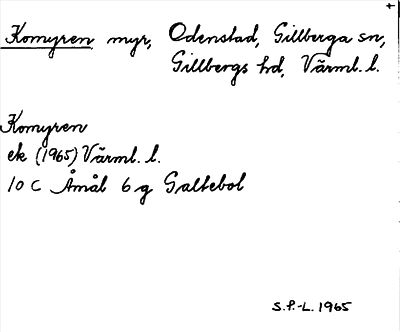 Komyren myr, Odenstad, Gillberga sn,
Gillbergs hd, Värml. l.
Komyren
ek (1965) Värml. l.
10 C Åmål 6 g Galtebol
S.P.-L. 1965